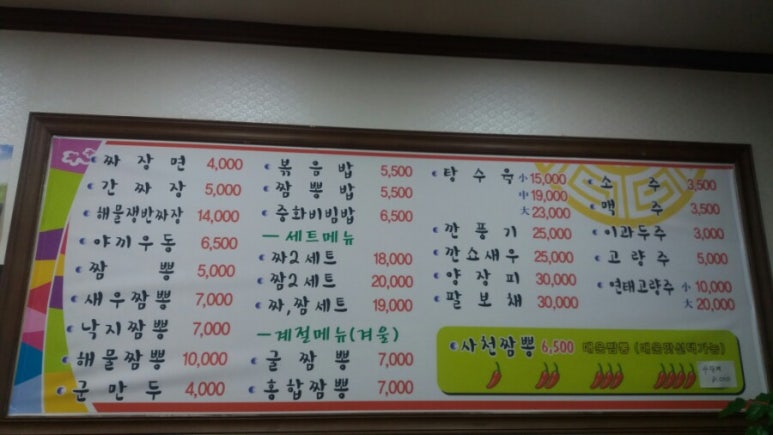 짜장면 4,000
간짜장 5,000
해물쟁반짜장 14,000
야끼우동 6,500
짬뽕 5,000
새우짬뽕 7,000
낙지짬뽕 7,000
해물짬뽕 10,000
군만두 4,000
볶음밥 5,500
짬뽕밥 5,500
중화비빔밥 6,500
-세트메뉴
짜2세트 18,000
짬2세트 20,000
짜,짬세트 19,000
-계절메뉴(겨울)
굴짬뽕 7,000
홍합짬뽕 7,000
탕수육 小 15,000
中 19,000
大 23,000
깐풍기 25,000
깐쇼새우 25,000
양장피 30,000
팔보채 30,000
소주 3,500
맥주 3,500
이과두주 3,000
고량주 5,000
연태고량주 小 10,000
大 20,000
사천짬뽕 6,500 매운짬뽕 (매운맛선택가능)